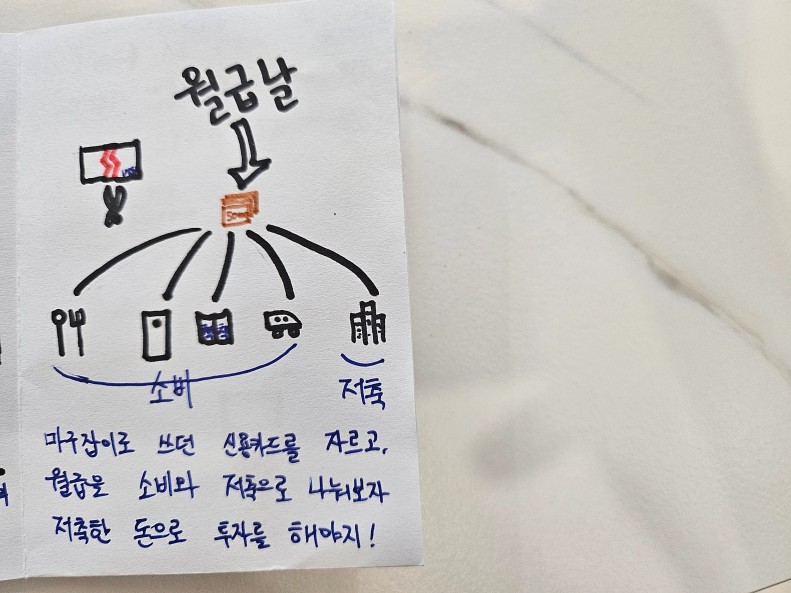 월급날
소비
저축
마구잡이로 쓰던 신용카드를 자르고,
월급을 소비와 저축으로 나눠보자
저축한 돈으로 투자를 해야지!